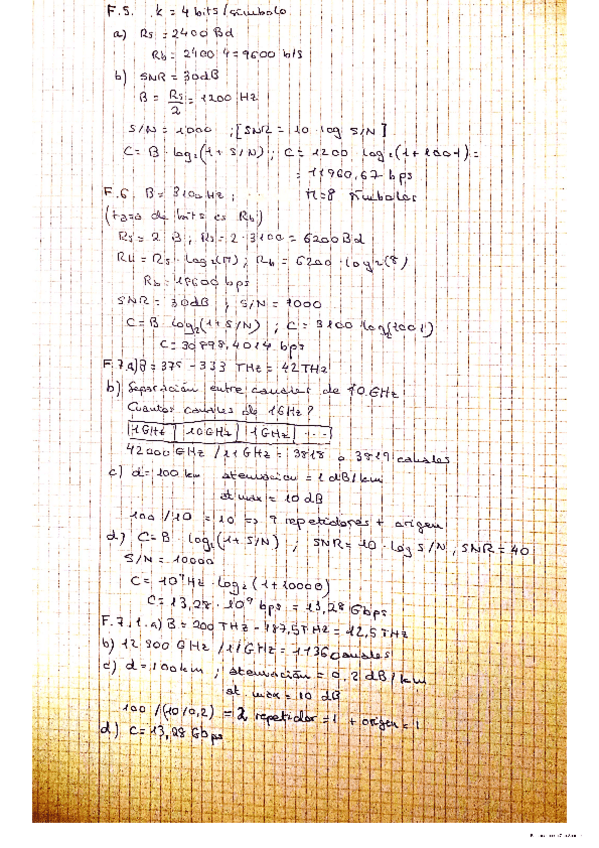 F.5. k = 4 bits/símbolo
a) Rs = 2400 Bd
Rb = 2400 · 4 = 9600 b/s
b) SNR = 30dB
B = Rs/2 = 1200 Hz
S/N = 1000 ; [SNR = 10 · log S/N]
C = B · log₂(1 + S/N) ; C = 1200 log₂(1+1000) =
= 11960,67 bps
F.6. B = 3100 Hz ; M = 8 símbolos
(tasa de bits es Rb)
Rs = 2 · B ; Rs = 2 · 3100 = 6200 Bd
Rb = Rs · log₂(M) ; Rb = 6200 · log₂(8)
Rb = 18600 bps
SNR = 30dB ; S/N = 1000
C = B log₂(1+S/N) ; C = 3100 log₂(1001)
C = 30898,4014 bps
F.7. a) B = 375 - 333 THz = 42 THz
b) Separación entre canales de 10 GHz
Cuantos canales de 1GHz?
1GHz | 10GHz | 1GHz | ...
42000 GHz / 11 GHz = 3818 o 3819 canales
c) d = 100 km atenuación = 1 dB/km
at max = 10 dB
100 / 10 = 10 => 9 repetidores + origen
d) C = B log₂(1 + S/N) ; SNR = 10 · log S/N ; SNR = 40
S/N = 10000
C = 10⁹ Hz · log₂(1 + 10000)
C = 13,28 · 10⁹ bps = 13,28 Gbps
F.7.1. a) B = 200 THz - 187,5 THz = 12,5 THz
b) 12 500 GHz / 11 GHz = 1136 canales
c) d = 100km ; atenuación = 0,2 dB/km
at max = 10 dB
100 / (10/0,2) = 2 repetidor = 1 + origen = 1
d) C = 13,28 Gbps